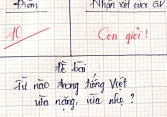 Điểm
Nhận xét của GV
10
Con giỏi !
Đề bài
Từ nào trong tiếng Việt
vừa nặng, vừa nhẹ ?